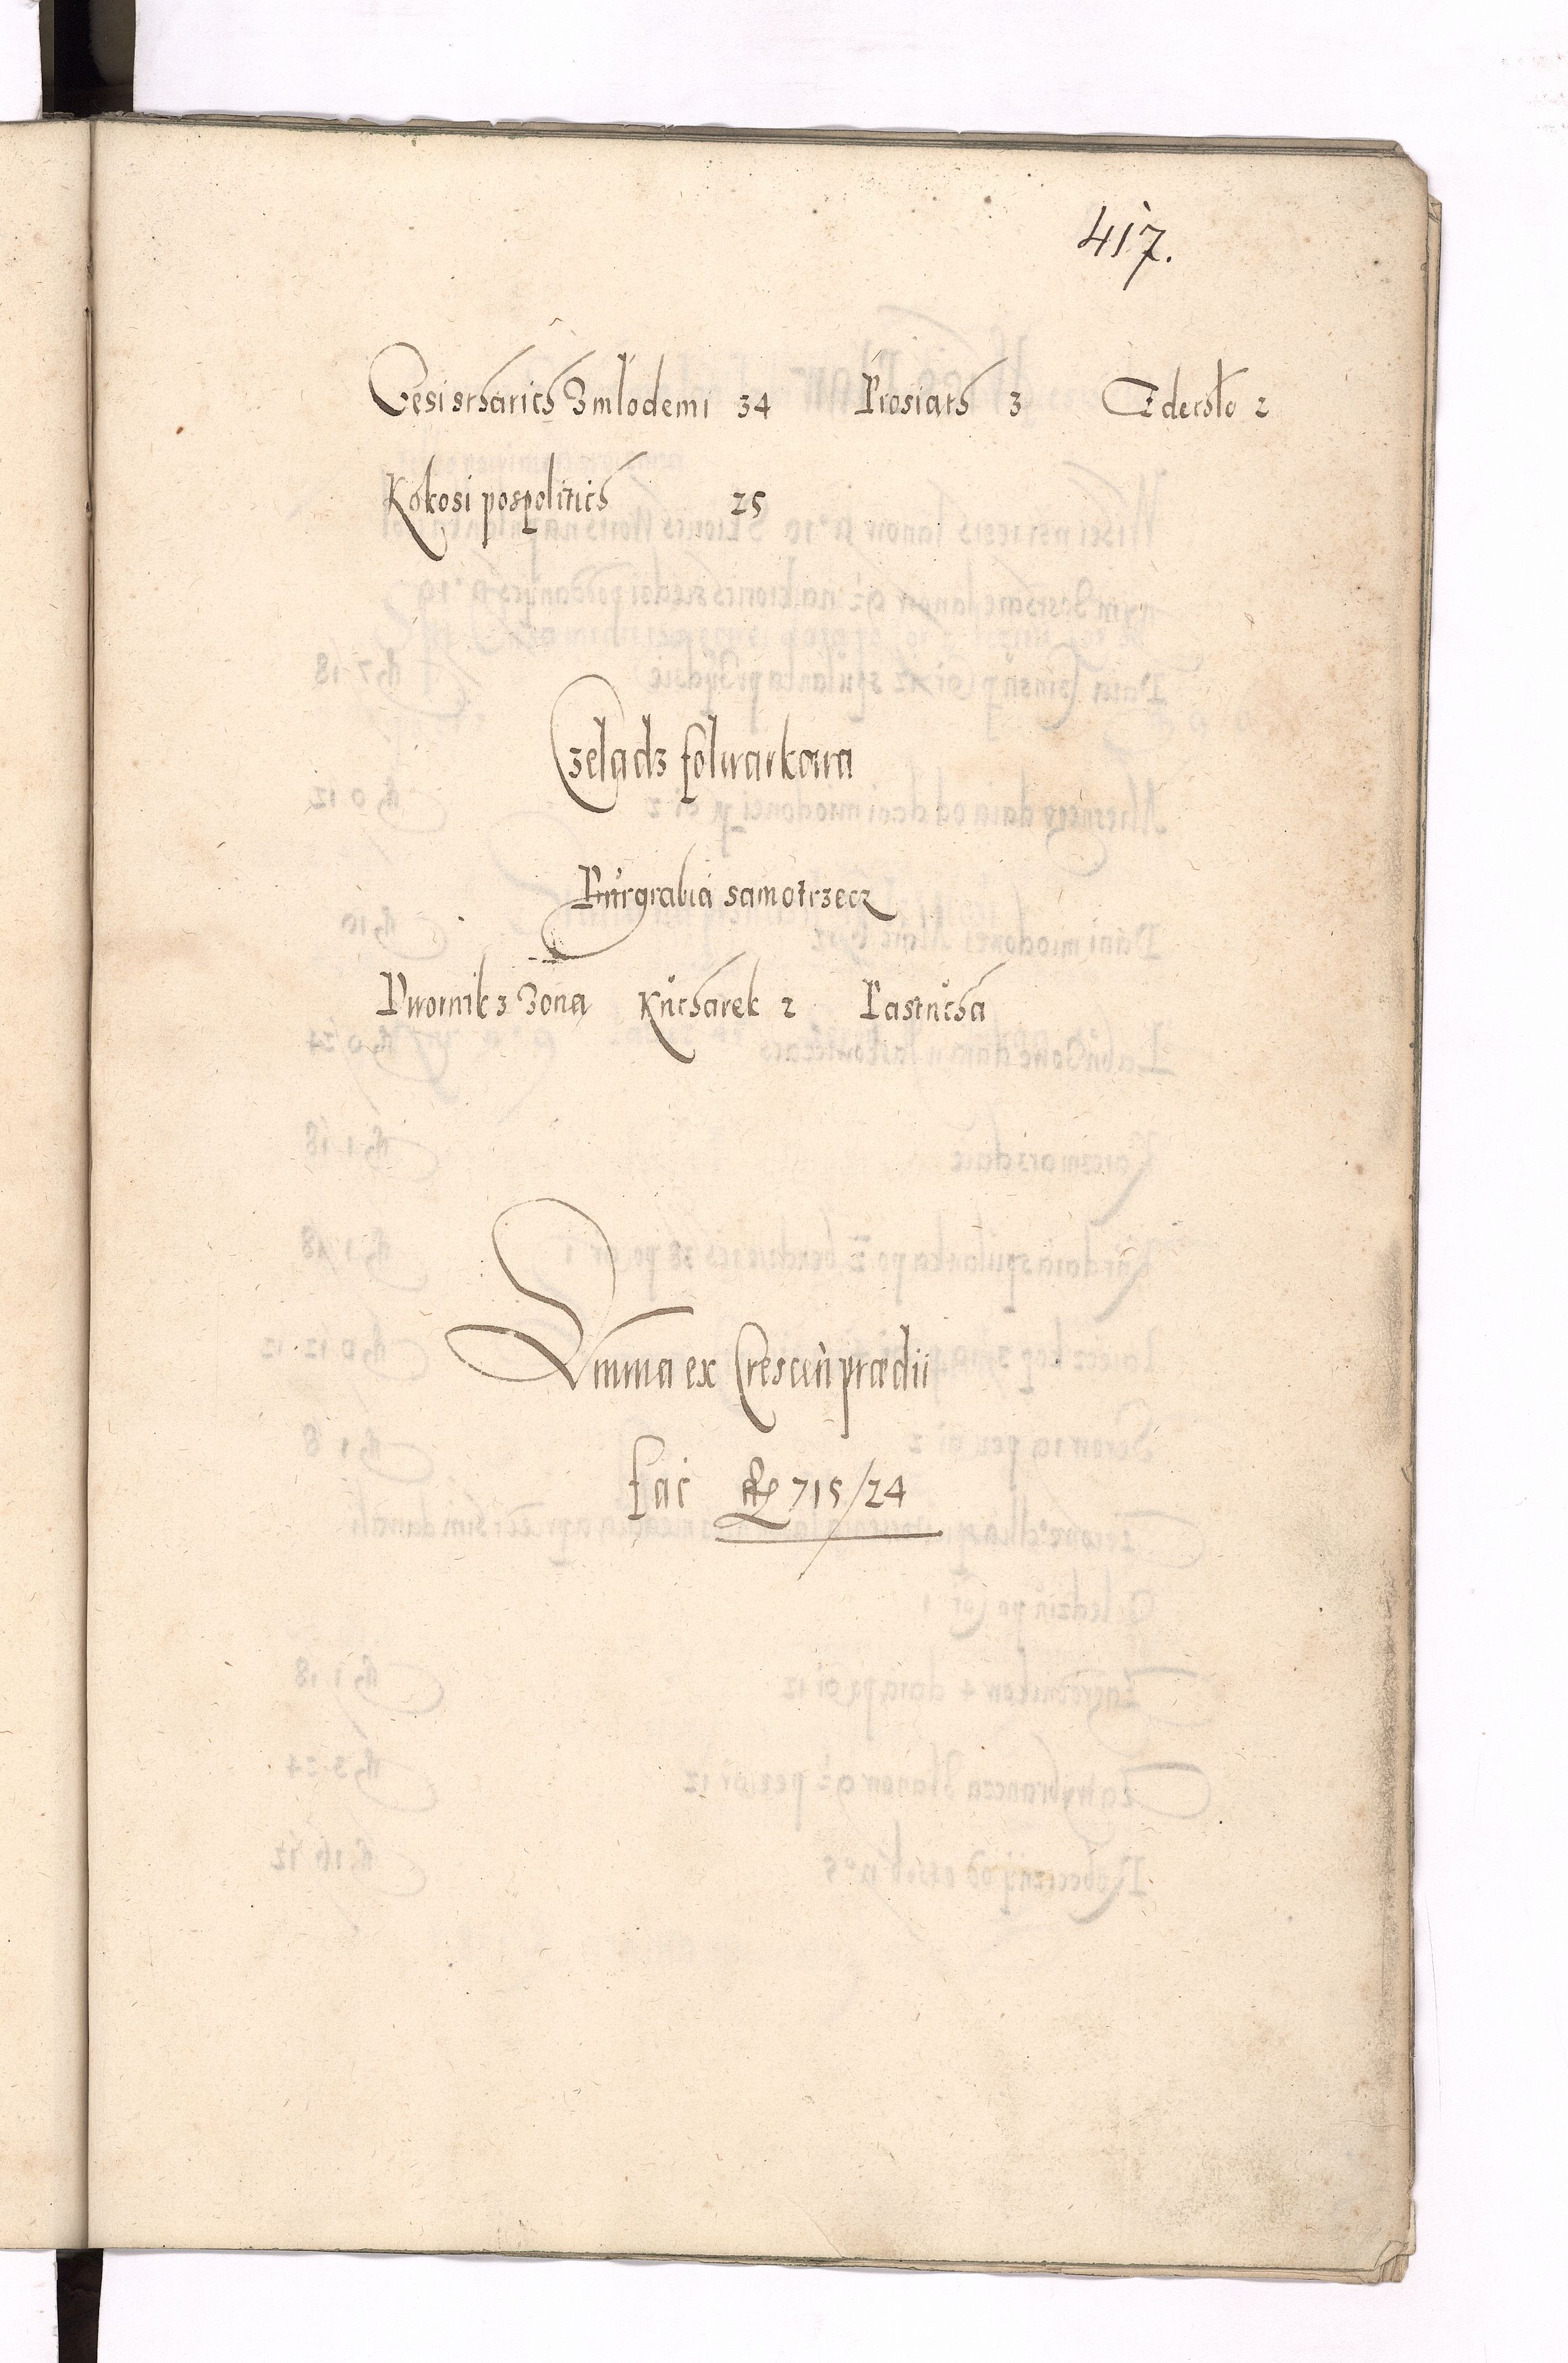 417.
Gęsi starich З młodemi 34 Prosiath 3 Zdechło 2
Kokosi pospolitich 25
Czeladz folwarkowa
Burgrabia samotrzecz
Dwornik з Żoną Kucharek 2 Pastucha
Summa ex Crescen prædii
fac fl 715/24